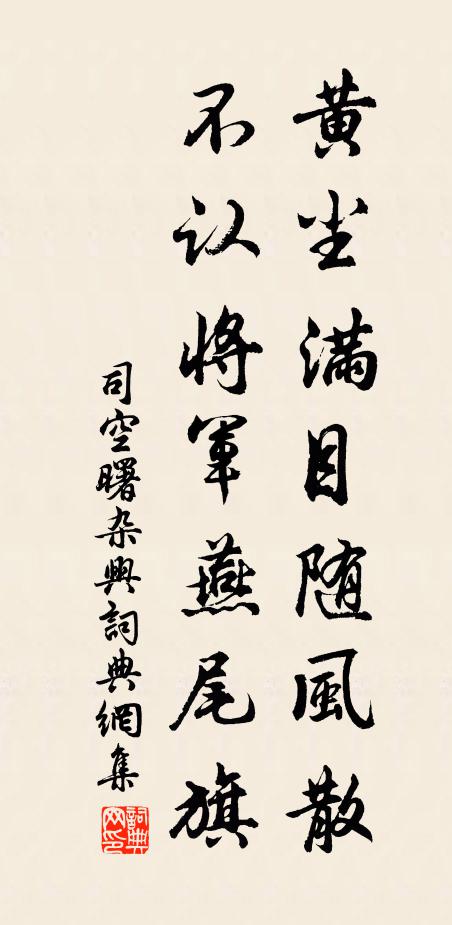 黄尘满目随風散
不认将軍燕尾旗
司空曙杂興詞典網集
詞典网印